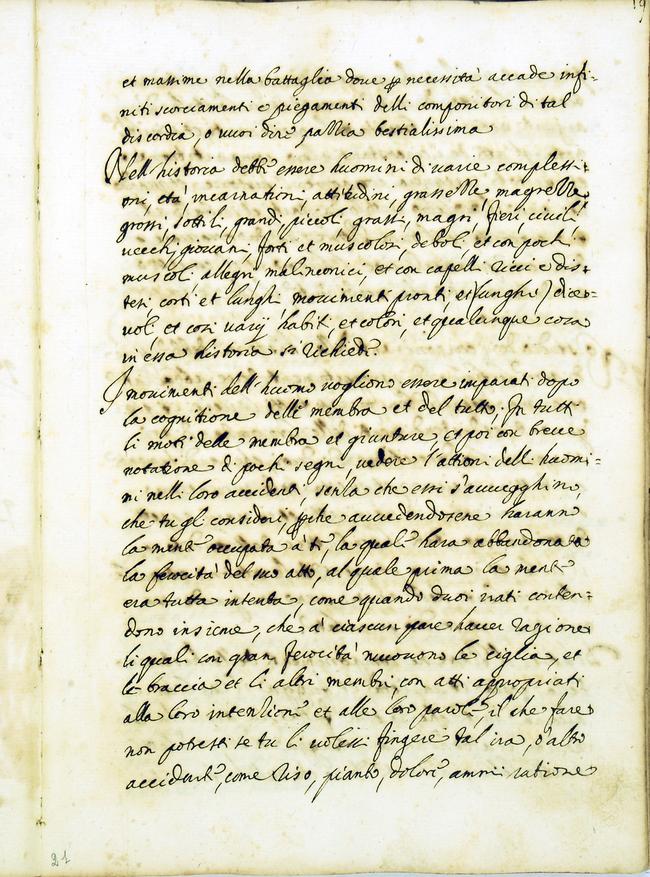 19
et massime nella battaglia dove p necessità accade infi=
niti scorciamenti e piegamenti delli componitori di tal
discordia, o vuoi dire pazzia bestialissima
Nell'historia debbe essere huomini di varie complessi=
oni, età incarnationi, attitudini, grassezze, magrezze,
grossi, sottili, grandi, piccoli grassi, magri, fieri, civili
vecchi, giovani, forti et muscolosi, deboli et con pochi
muscoli allegri, malinconici, et con capelli ricci e dis=
tesi, corti et lunghi movimenti pronti, et (lunghi) dice=
voli et cosi varij habiti, et colori, et qualunque cosa
in essa historia si richiede.
I movimenti dell'huomo vogliono essere imparati dopo
la cognitione delle membra et del tutto; In tutti
li moti delle membra et giunture, et poi con breve
notatione di pochi segni, vedere l'attioni delli huomi=
ni nelli loro accidenti, senza che essi s'avvegghino
che tu gli consideri, pche avvedendosene haranno
la mente occupata à te, la quale harà abbandonata
la ferocità del suo atto, al quale prima la mente
era tutta intenta, come quando duoi irati conten=
dono insieme, che à ciascun pare haver ragione
li quali con gran ferocità muovono le ciglia, et
le braccia et li altri membri, con atti appropriati
alla loro intenzione et alle loro parole, il che fare
non potresti se tu li volessi fingere tal ira, o altro
accidente, come riso, pianto, dolore, ammiratione
21